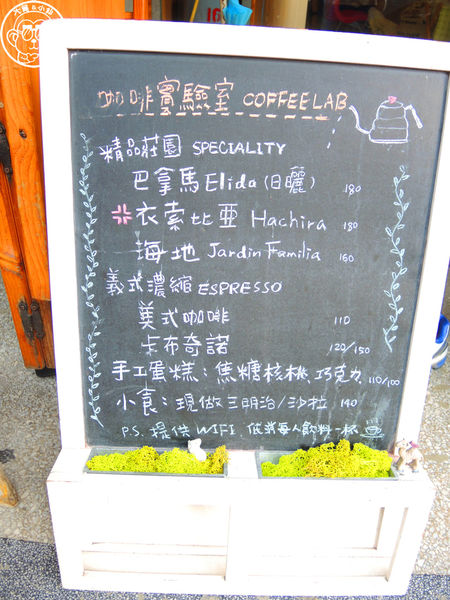 咖啡實驗室 COFFEE LAB
精品莊園 SPECIALITY
巴拿馬 Elida (日曬) 180
衣索比亞 Hachira 180
海地 Jardin Familia 160
義式濃縮 ESPRESSO
美式咖啡 110
卡布奇諾 120/150
手工蛋糕：焦糖核桃、巧克力 110/100
小食：現做三明治/沙拉 140
P.S. 提供 WIFI. 低消每人飲料一杯